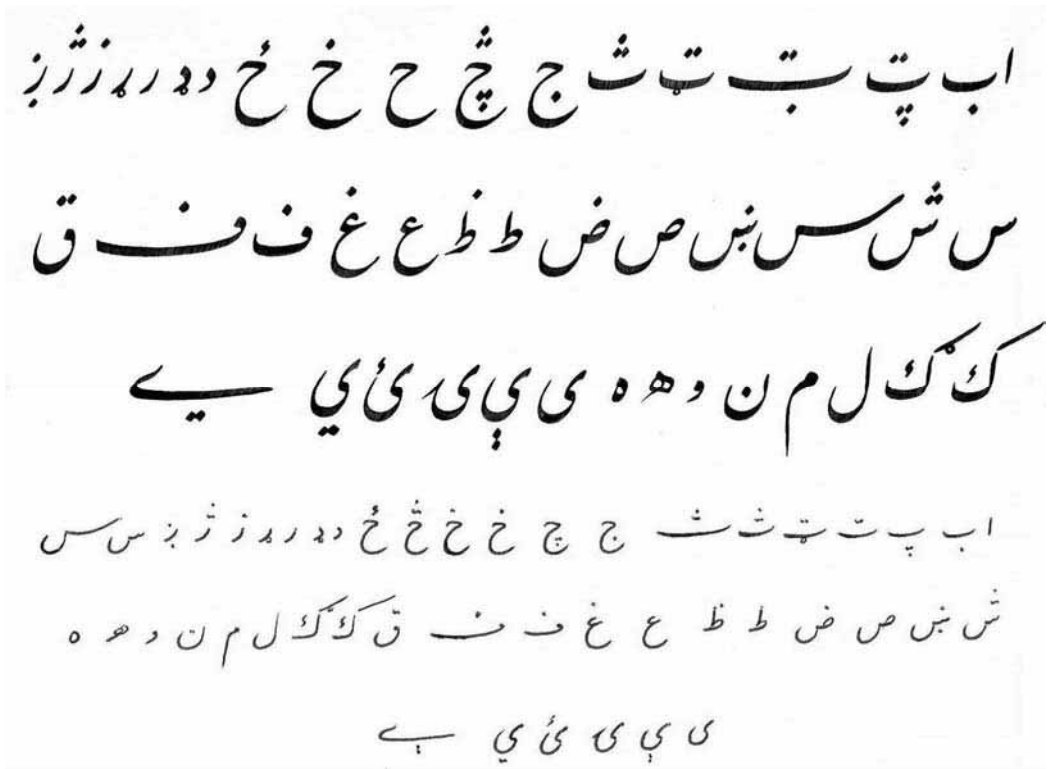 ا ب پ ت ټ ث ج چ ح خ ځ د ډ ر ړ ز ژ ږ
س ش س ښ ص ض ط ظ ع غ ف ف ق
ک ګ ل م ن و ه ه ی ې ۍ ئ ي ے
ا ب پ ت ټ ث ث ج چ خ خ څ ځ د ډ ر ړ ز ژ ږ س س
ش ښ ص ض ط ظ ع غ ف ف ق ک ګ ل م ن و ه ه
ی ې ۍ ئ ي ې